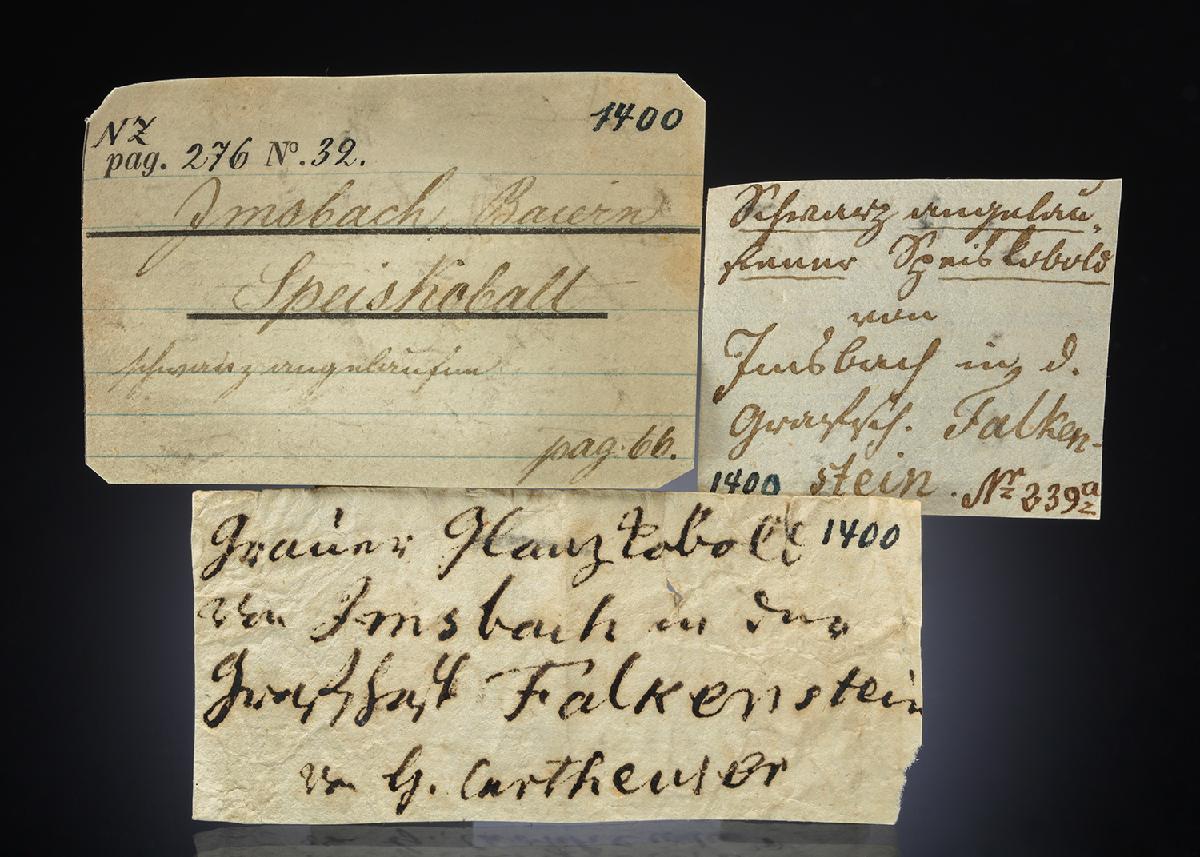 NZ
1400
pag. 276 No. 32.
Imsbach Baiern
Speiskobalt
schwarz angelaufen
pag. 66.
Schwarz angelau„
fener Speiskobold
von
Imsbach in d.
Grafsch. Falken-
1400 stein. Nr 239a
Grauer Glanzkobold 1400
von Imsbach in der
Grafschaft Falkenstein
von H. Cartheuser